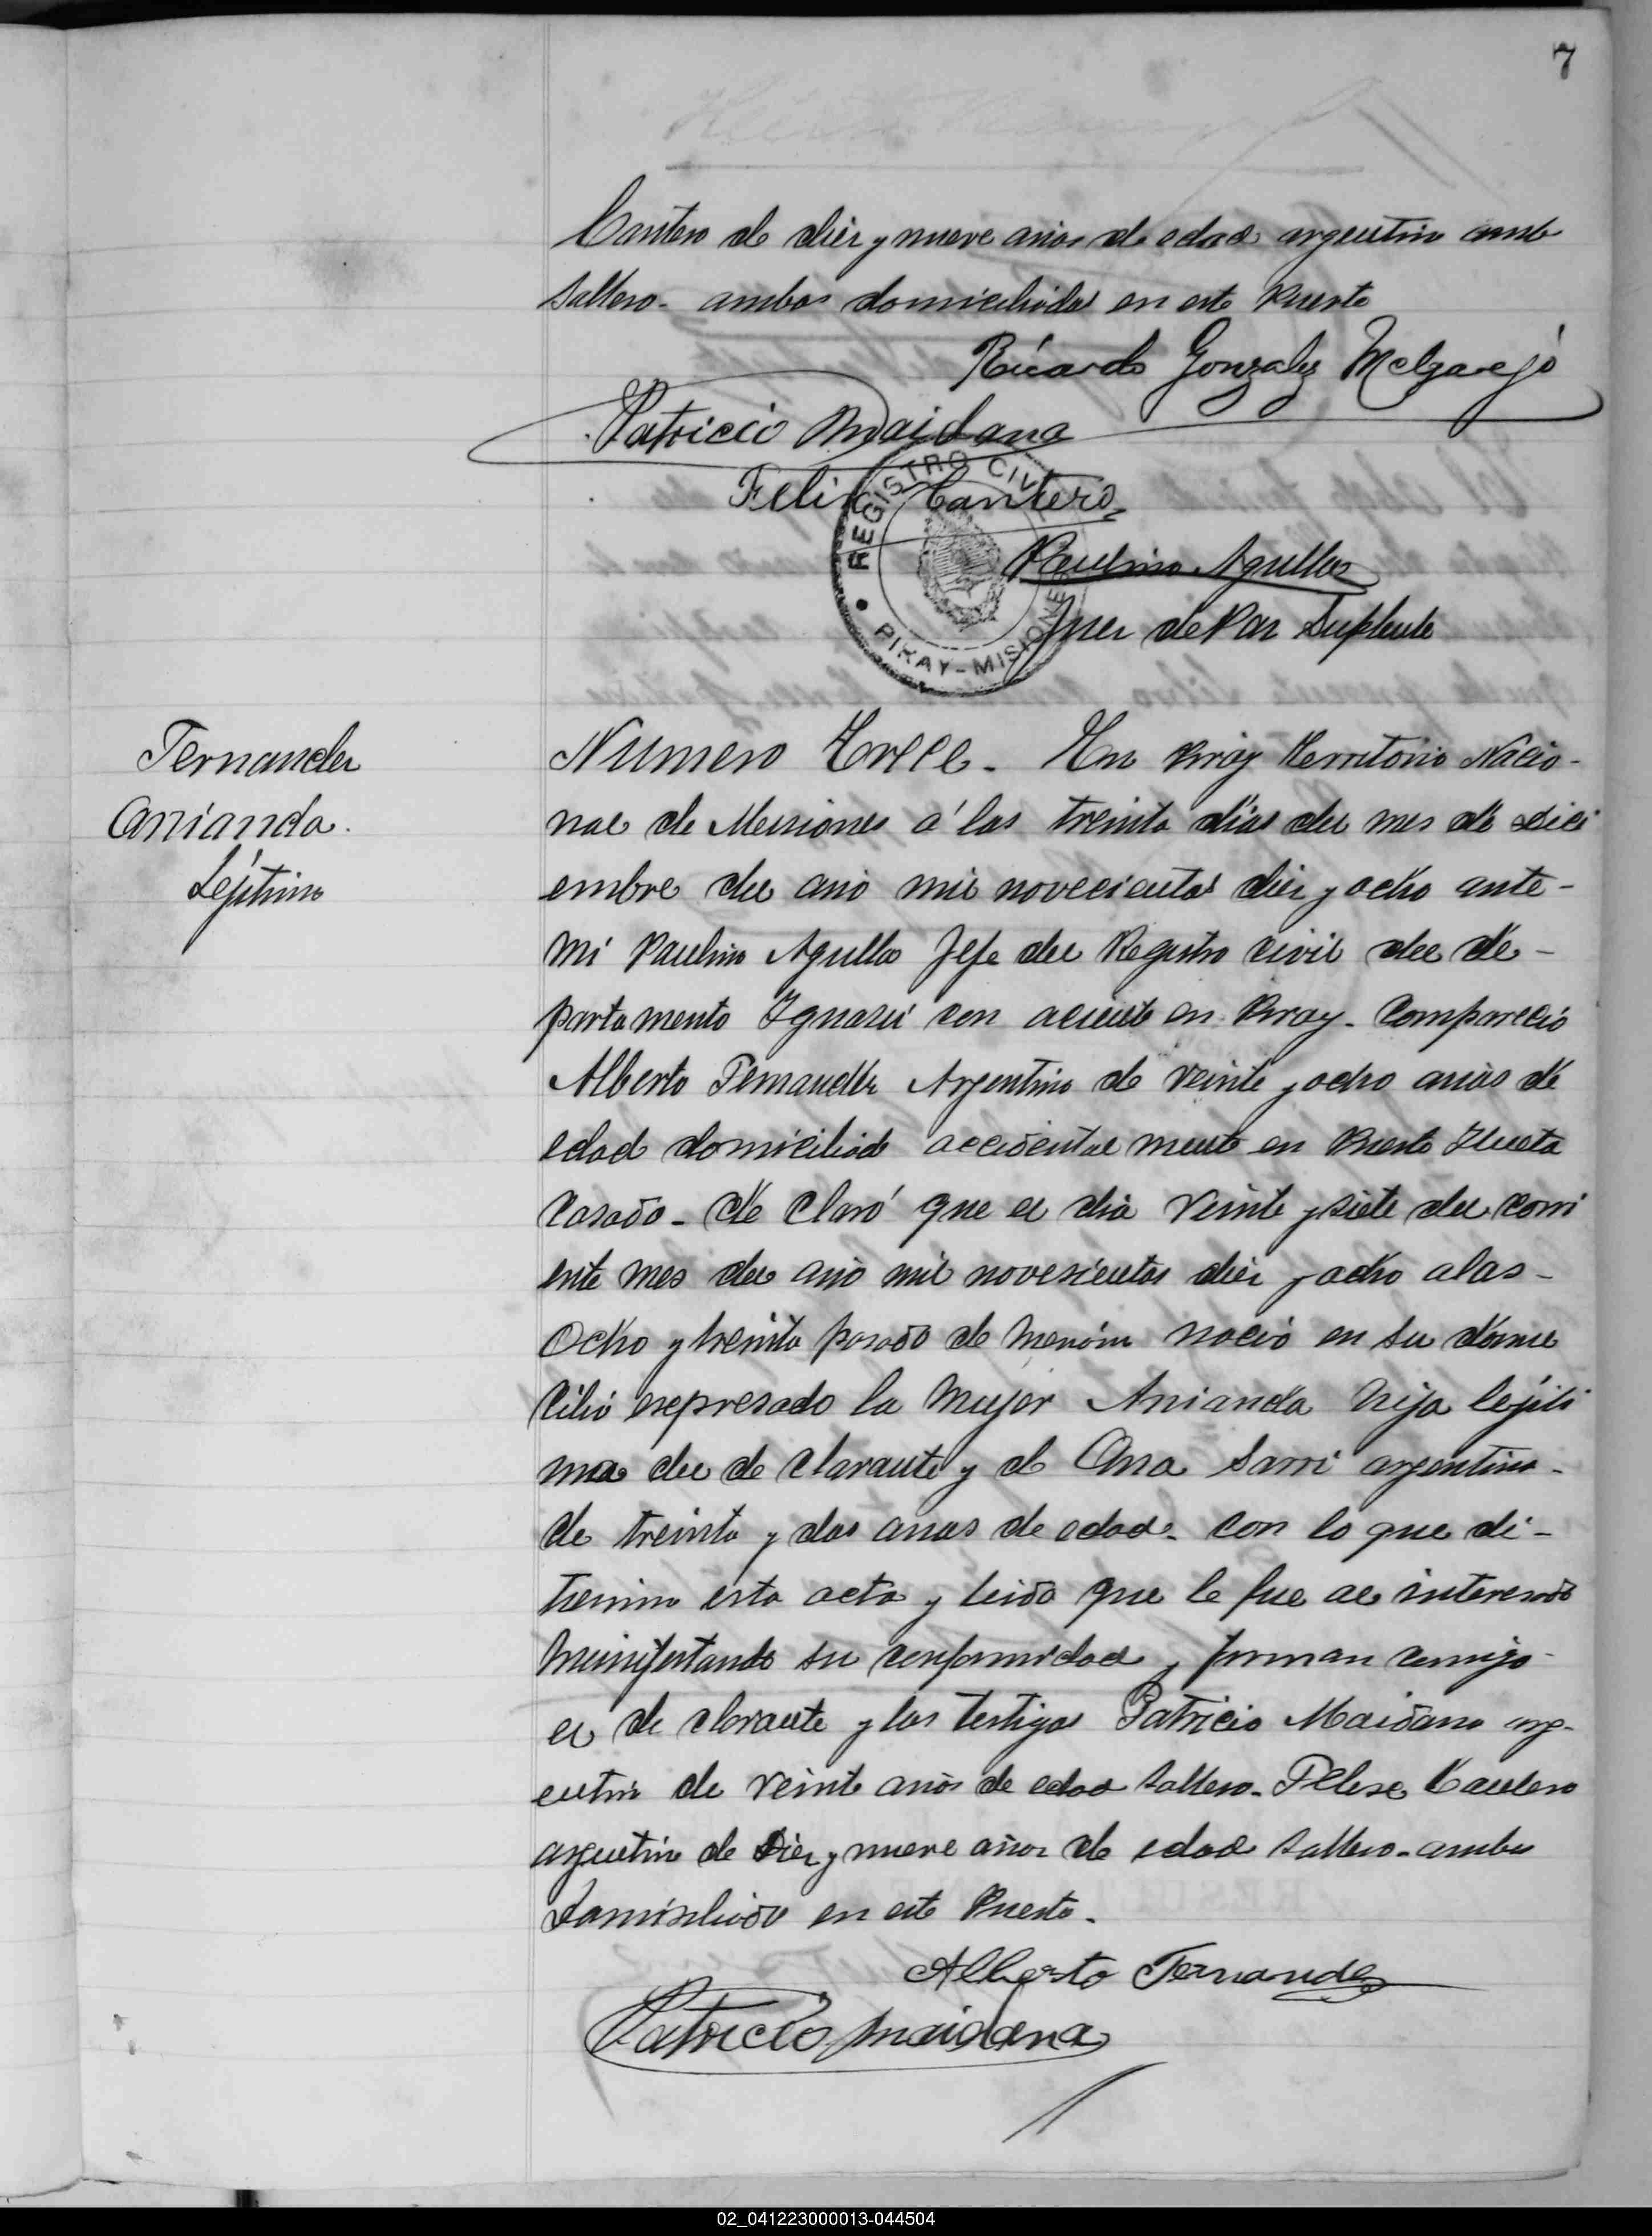 7
Cantero de diez y nueve años de edad argentino amb
soltero - ambos domiciliados en este Puerto
Ricardo Gonzalez Melgarejo
Patricio Maidana
Felix Cantero
REGISTRO CIVIL
PIRAY - MISIONES
Paulino Agullo
Juez de Paz Suplente
Fernandez
Anianda.
Lejitimo
Numero Trece. En Piray Territorio Nacio-
nal de Misiones á las treinta dias del mes de Dici
embre del año mil novecientos diez y ocho ante-
mi Paulino Agullo Jefe del Registro Civil del de-
partamento Iguazú con aciento en Piray. Comparecio
Alberto Fernandez Argentino de veinte y ocho años de
edad domiciliado accidental mente en Puerto
Casado - de claró que el dia veinte y siete del corri
ente mes del año mil novesientos diez y ocho a las-
Ocho y treinta pasado de nació en su domi
cilio espresado la mujer Anianda hija lejiti
ma del de clarante y de Ana Sarri argentina-
de treinta y dos años de edad - con lo que di-
termino esta acta y leida que le fue al interesado
manifestando su conformidad y firman comigo-
el de clarante y los testigos Patricio Maidana arg-
entin de veinte años de edad soltero - Felise Cantero
argentino de Diez y nueve años de edad soltero - ambos
Domisiliado en este Puerto.
Alberto Fernandez
Patricio Maidana
02_041223000013-044504